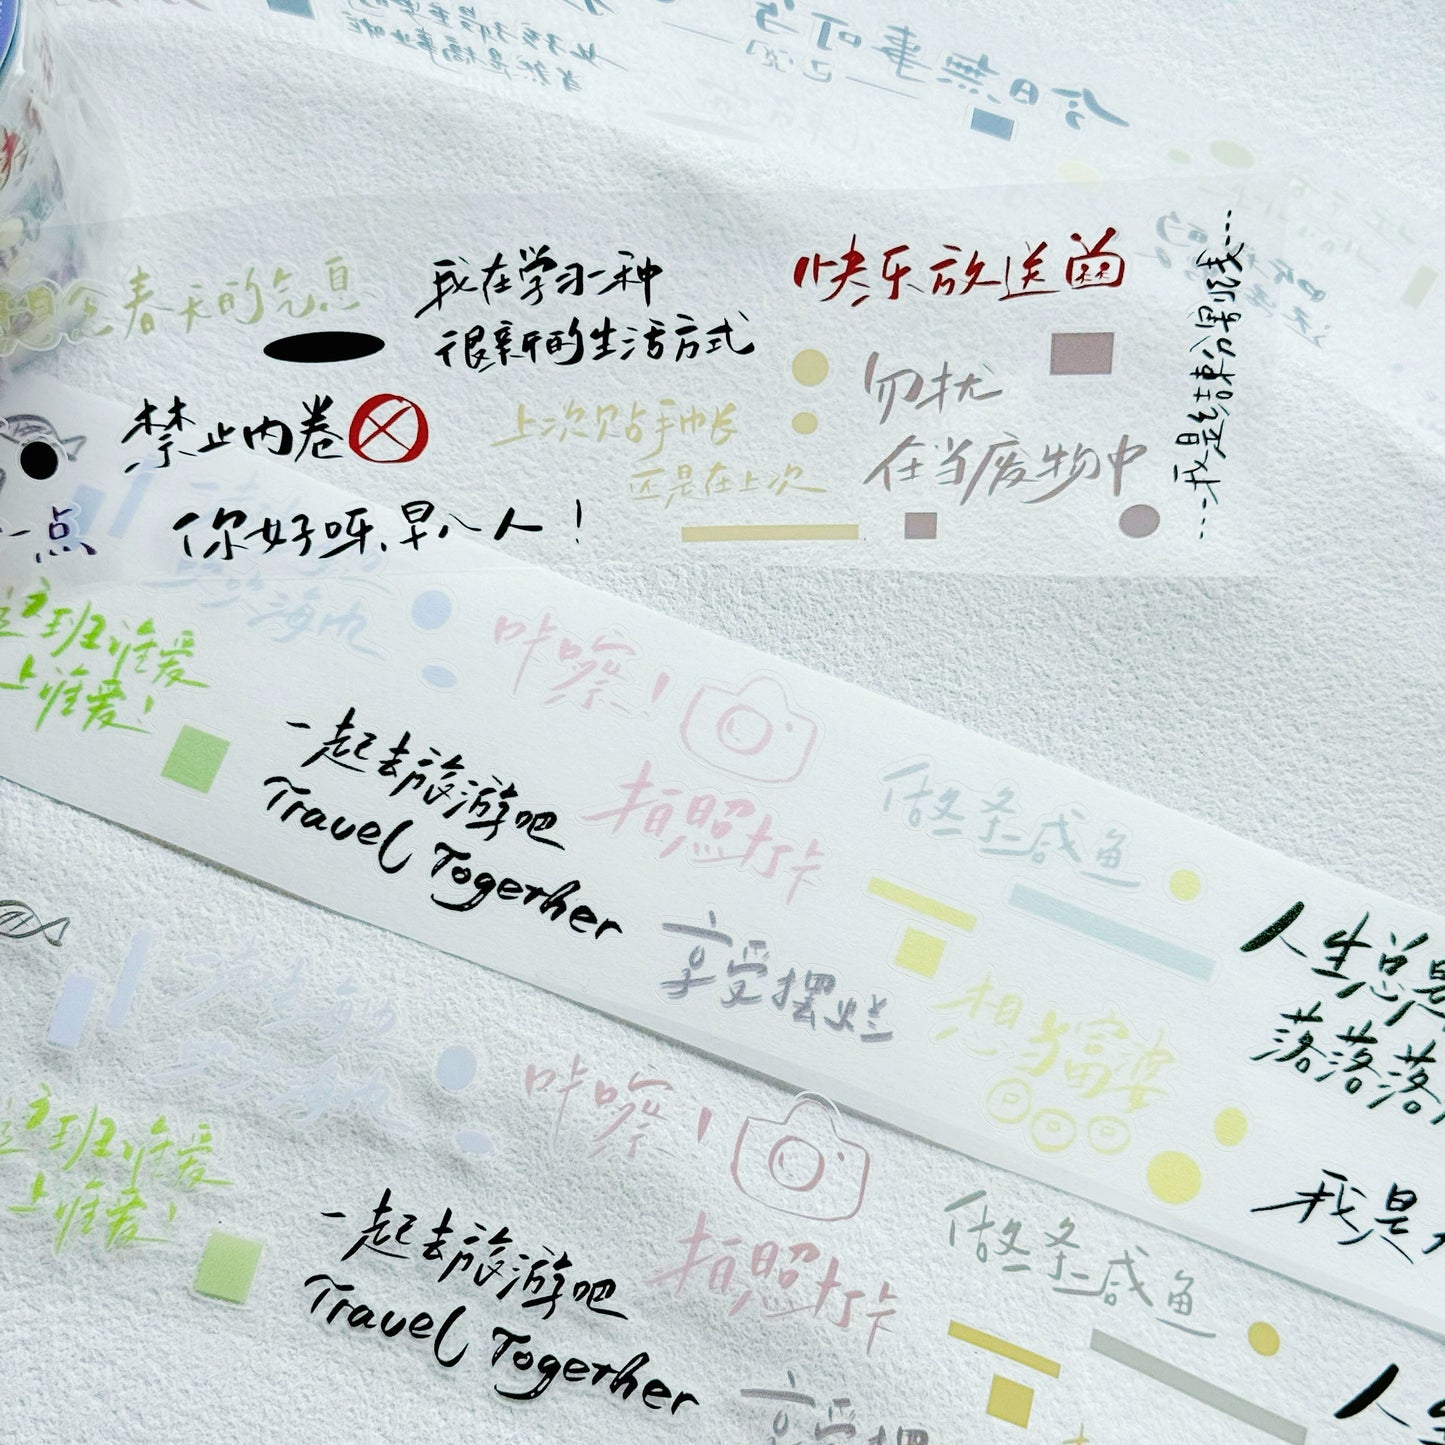 今日無事可当
春天的气息
我在学习一种
很新的生活方式
快乐放送
禁止内卷
上次贴手帐
还是在上次
勿扰
在当废物中
我是结束分割线
一点
你好呀,早八人!
这班谁爱
上谁爱!
咔嚓!
一起去旅游吧
Travel Together
拍照打卡
做冬条咸鱼
享受摆烂
想当富婆
人生总是
落落落落
我是
这班谁爱
上谁爱!
咔嚓!
一起去旅游吧
Travel Together
拍照打卡
做冬条咸鱼
享受摆
人生